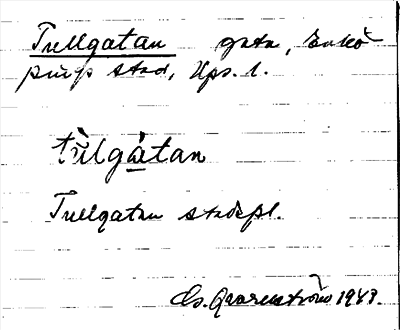 Tullgatan gata, Enkö
pings stad, Ups. l.
tùlgàtan
Tullgatan stadspl.
Cs. Qvarnström 1943.